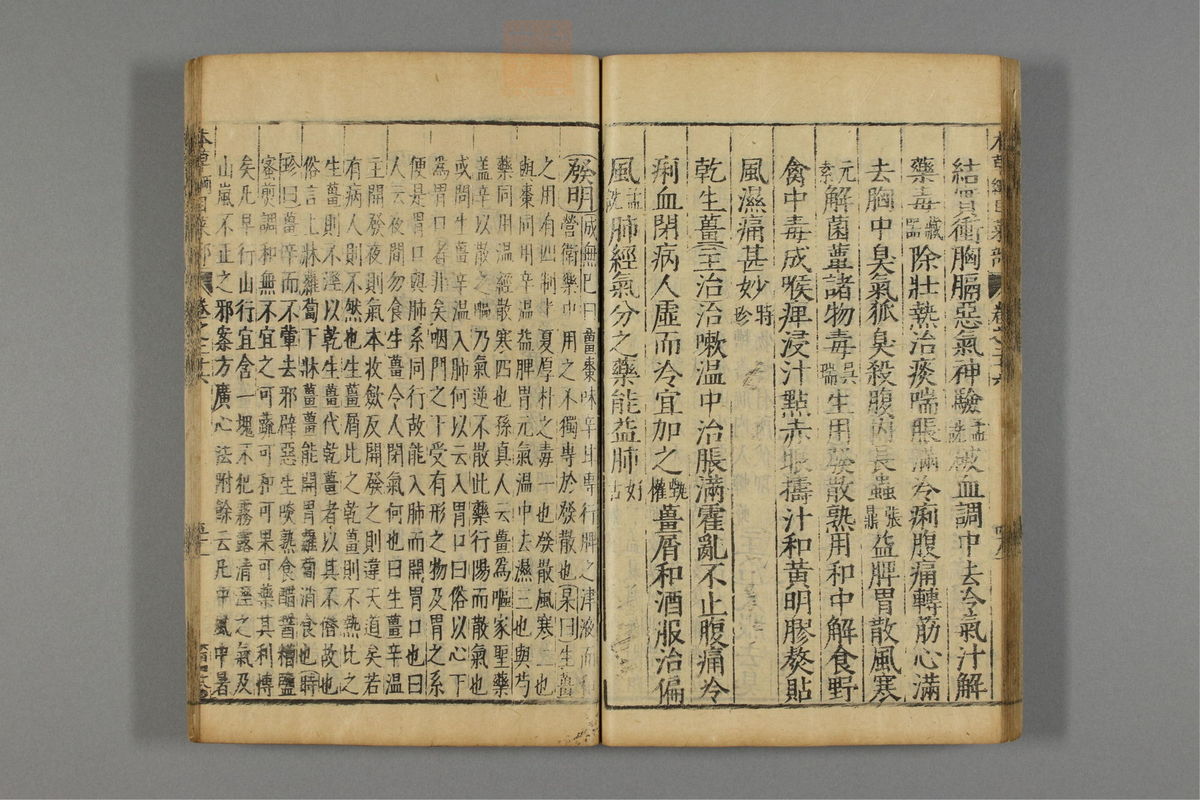 結實衝胸膈惡氣神驗孟詵破血調中去冷氣汁解
藥毒藏器除壯熱治痰喘脹滿冷痢腹痛轉筋心滿
去胸中臭氣狐臭殺腹內長蟲張鼎益脾胃散風寒
元素解菌蕈諸物毒吳瑞生用發散熟用和中解食野
禽中毒成喉痺浸汁點赤眼擣汁和黃明膠熬貼
風濕痛甚妙時珍
乾生薑主治治嗽温中治脹滿霍亂不止腹痛冷
痢血閉病人虛而冷宜加之甄權薑屑和酒服治偏
風孟詵肺經氣分之藥能益肺好古
發明成無己曰薑棗味辛甘專行脾之津液而和
營衛藥中用之不獨專於發散也杲曰生薑
之用有四制半夏厚朴之毒一也發散風寒二也
與棗同用辛温益脾胃元氣温中去濕三也與芍
藥同用温經散寒四也孫真人云薑為嘔家聖藥
盖辛以散之嘔乃氣逆不散此藥行陽而散氣也
或問生薑辛温入肺何以云入胃口曰俗以心下
為胃口者非矣咽門之下受有形之物及胃之系
便是胃口與肺系同行故能入肺而開胃口也曰
人云夜間勿食生薑令人閉氣何也曰生薑辛温
主開發夜則氣本收斂反開發之則違天道矣若
有病人則不然也生薑屑比之乾薑則不熱比之
生薑則不溼以乾生薑代乾薑者以其不僭故也
俗言上牀蘿蔔下牀薑薑能開胃蘿蔔消食也時
珍曰薑辛而不葷去邪辟惡生啖熟食醋醬糟鹽
蜜煎調和無不宜之可蔬可和可果可藥其利博
矣凡早行山行宜含一塊不犯霧露清溼之氣及
山嵐不正之邪案方廣心法附餘云凡中風中暑